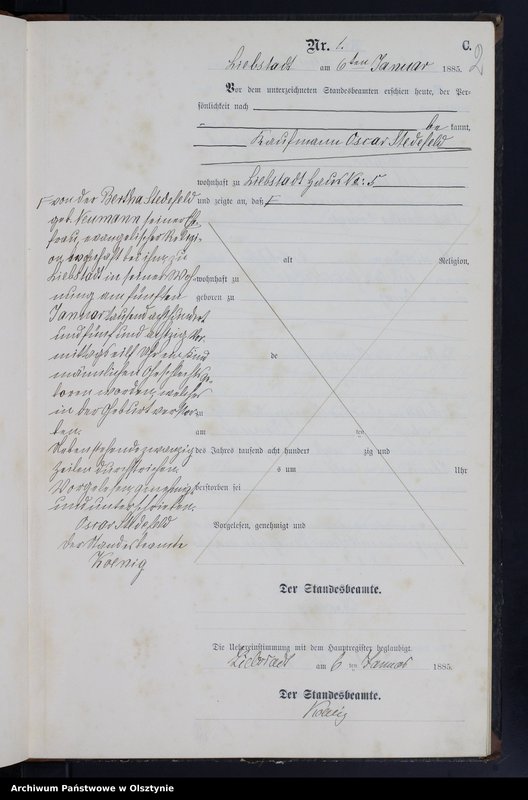 Nr. 1. C. 2
Liebstadt am 6ten Januar 1885.
Vor dem unterzeichneten Standesbeamten erschien heute, der Per-
sönlichkeit nach
be kannt,
Kaufmann Oscar Stedefeld
wohnhaft zu Liebstadt Haus No: 5
und zeigte an, daß
von der Bertha Stedefeld
geb. Neumann seiner Ehe-
frau, evangelischer Religi-
on wohnhaft bei ihm zu
Liebstadt in seiner Woh-
nung am fünften
Januar tausend achthundert
und fünf und achtzig Vor-
mittags eilf Uhr ein Kind
männlichen Geschlechts ge-
boren worden, welches
in der Geburt verstor-
ben.
Nebenstehende zwanzig
Zeilen durchstrichen.
Vorgelesen, genehmigt
und unterschrieben.
Oscar Stedefeld
Der Standesbeamte
alt Religion,
wohnhaft zu
geboren zu
de
zu
am ten
des Jahres tausend acht hundert zig und
s um Uhr
verstorben sei
Vorgelesen, genehmigt und
Der Standesbeamte.
Die Uebereinstimmung mit dem Hauptregister beglaubigt.
Liebstadt am 6 ten Januar 1885.
Der Standesbeamte.
Archiwum Państwowe w Olsztynie